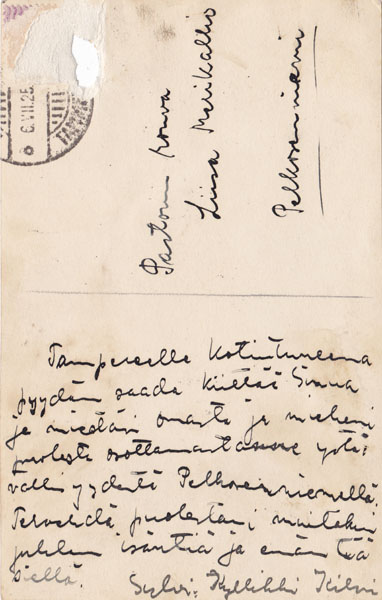 6.VII.25
Pastorin rouva
Liisa Merikallio
Pelkosenniemi
Tampereelle kotiutuneena
pyydän saada kiittää Sinua
ja miestäsi omasta ja mieheni
puolesta osottamastanne ystä-
vällisyydestä Pelkosenniemellä.
Tervehdä puolestani muitakin
isäntiä ja emäntiä
siellä. Sylvi-Kyllikki Kilpi